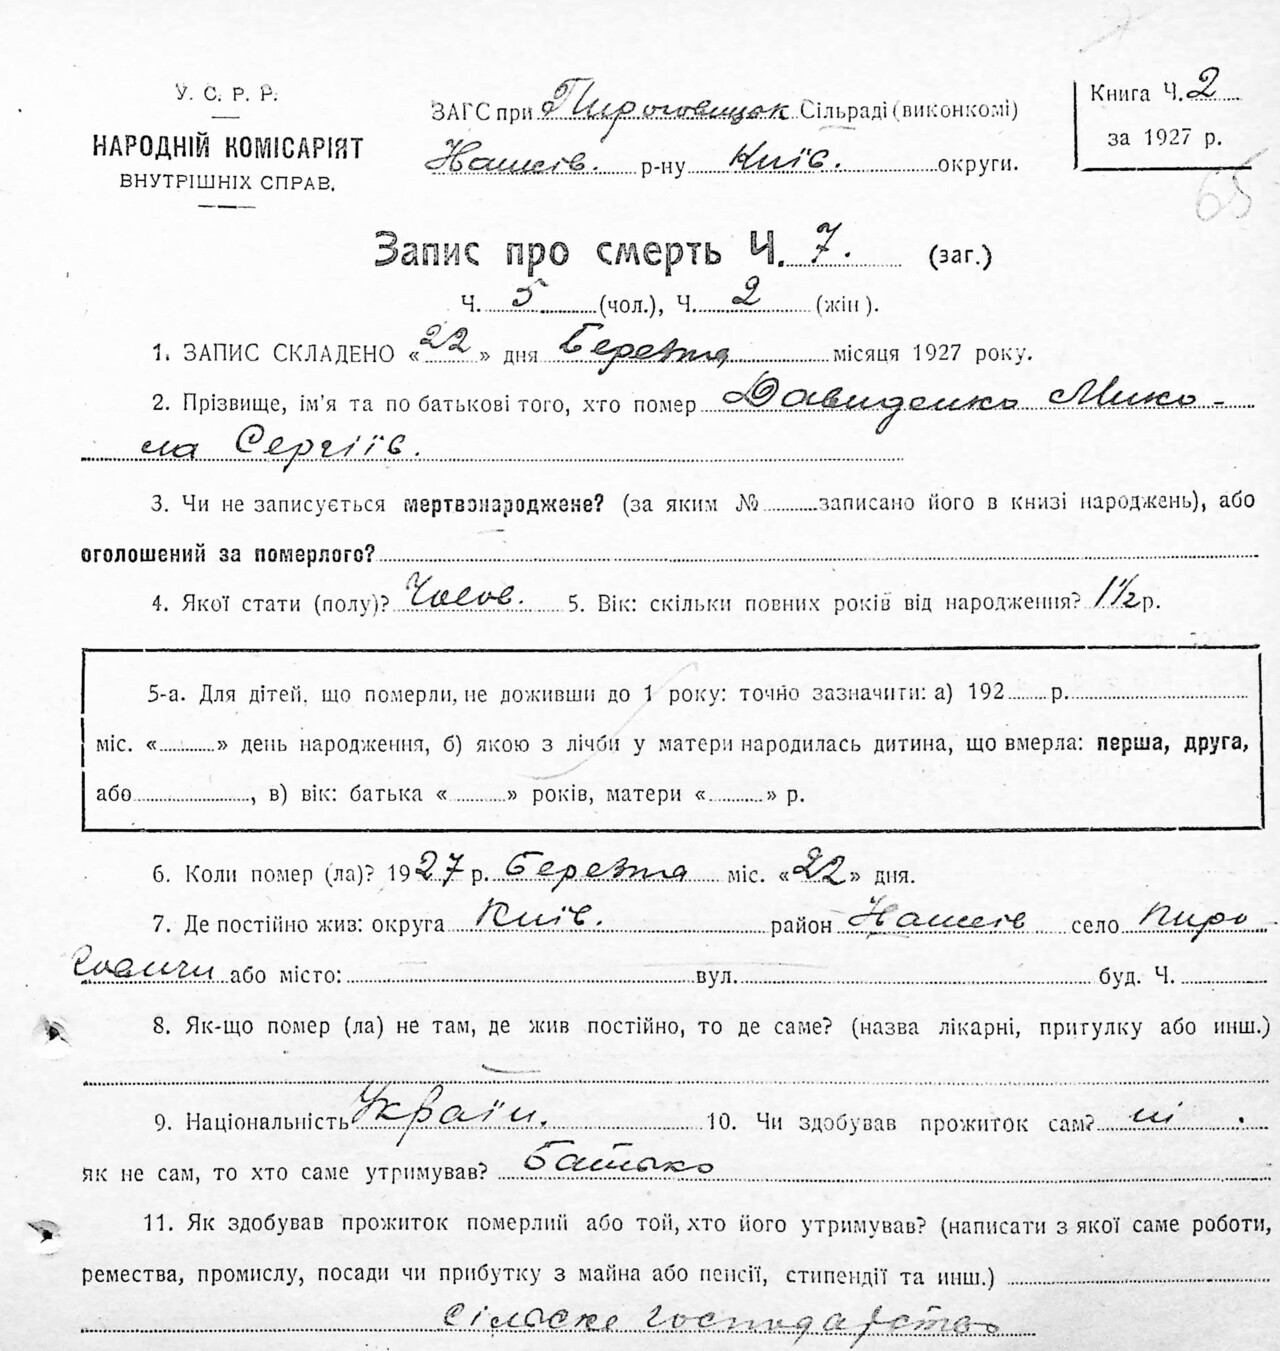 У. С. Р. Р.
НАРОДНІЙ КОМІСАРІЯТ
ВНУТРІШНІХ СПРАВ.
ЗАГС при Пироговицок Сільраді (виконкомі)
р-ну Київ. округи.
Книга Ч. 2
за 1927 р.
65
Запис про смерть Ч. 7. (заг.)
Ч. 5 (чол.), Ч. 2 (жін).
1. ЗАПИС СКЛАДЕНО «22» дня Березня місяця 1927 року.
2. Прізвище, ім'я та по батькові того, хто помер Давиденко Мико-
ла Сергіїв.
3. Чи не записується мертвонароджене? (за яким № записано його в книзі народжень), або
оголошений за померлого?
4. Якої стати (полу)? Чолов. 5. Вік: скільки повних років від народження? 1½ р.
5-а. Для дітей, що померли, не доживши до 1 року: точно зазначити: а) 192 р.
міс. « » день народження, б) якою з лічби у матери народилась дитина, що вмерла: перша, друга,
або , в) вік: батька « » років, матери « » р.
6. Коли помер (ла)? 1927 р. Березня міс. «22» дня.
7. Де постійно жив: округа Київ. район село Пиро-
говичи або місто: вул. буд. Ч.
8. Як-що помер (ла) не там, де жив постійно, то де саме? (назва лікарні, притулку або инш.)
9. Національність Україн. 10. Чи здобував прожиток сам? ні.
як не сам, то хто саме утримував? Батько
11. Як здобував прожиток померлий або той, хто його утримував? (написати з якої саме роботи,
ремества, промислу, посади чи прибутку з майна або пенсії, стипендії та инш.)
сільске господарство